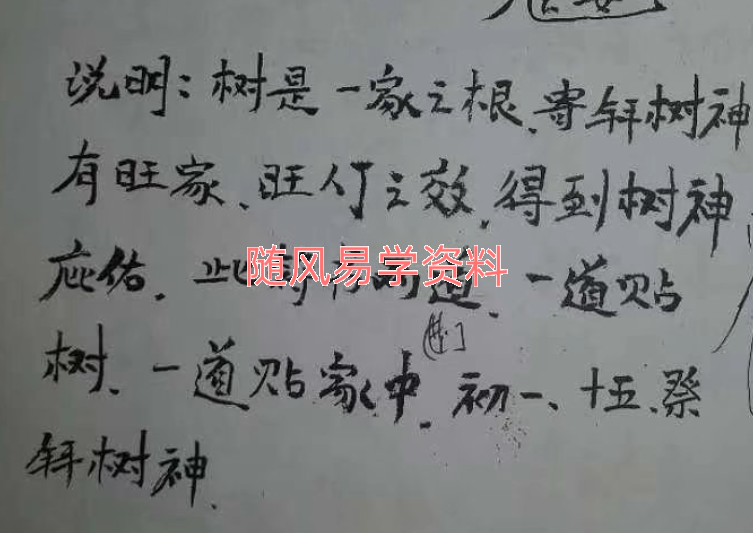 说明：树是一家之根、寄拜树神
有旺家、旺人丁之效，得到树神
庇佑．此
随风易学资料
道、一道贴
树、一道贴家中．初一、十五、祭
拜树神．